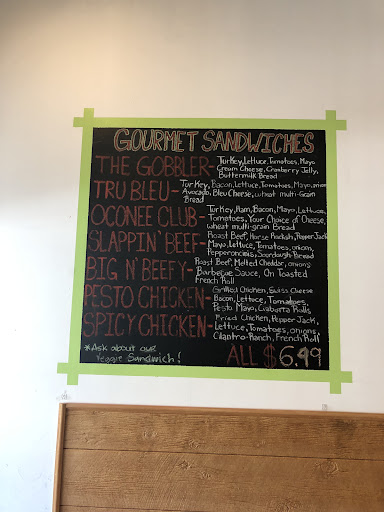 GOURMET SANDWICHES
THE GOBBLER- Turkey, Lettuce, Tomatoes, Mayo
Cream Cheese, Cranberry Jelly,
Buttermilk Bread
TRU BLEU- Turkey, Bacon, Lettuce, Tomatoes, Mayo, onion
Avocado, Bleu Cheese, wheat multi-Grain
Bread
OCONEE CLUB- Turkey, Ham, Bacon, Mayo, Lettuce,
Tomatoes, Your Choice of Cheese,
wheat multi-grain Bread
SLAPPIN' BEEF- Roast Beef, Horse Radish, Pepper Jack
Mayo, Lettuce, Tomatoes, onion,
Pepperoncinis, Sourdough Bread
BIG N' BEEFY- Roast Beef, Melted Cheddar, onions
Barbecue Sauce, On Toasted
French Roll
PESTO CHICKEN- Grilled Chicken, Swiss Cheese
Bacon, Lettuce, Tomatoes,
Pesto Mayo, Ciabatta Rolls
SPICY CHICKEN- Fried Chicken, Pepper Jack,
Lettuce, Tomatoes, onions,
Cilantro-Ranch, French Roll
*Ask about our
Veggie Sandwich!
ALL $6.49